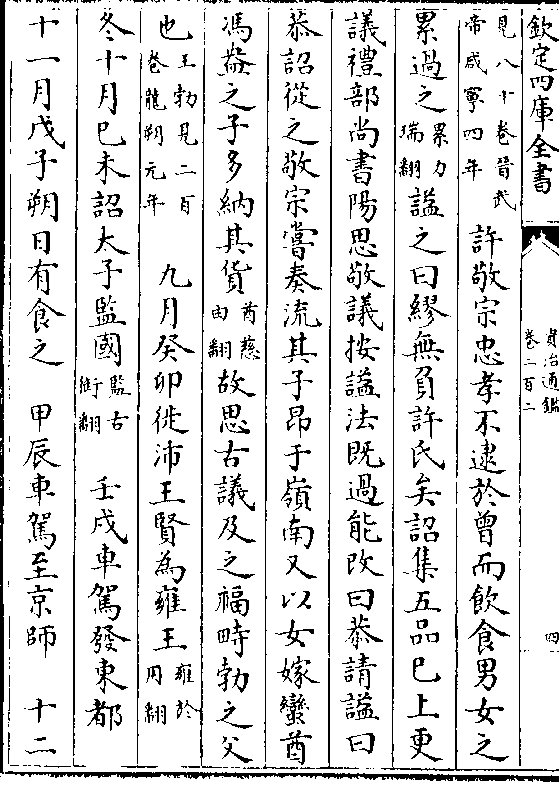 欽定四庫全書
資治通鑑
卷二百二
四
見八十卷晉武
帝咸寧四年
許敬宗忠孝不逮於曾而飲食男女之
累過之累力瑞翻諡之曰繆無負許氏矣詔集五品已上更
議禮部尚書陽思敬議按諡法既過能改曰恭請諡曰
恭詔從之敬宗嘗奏流其子昂于嶺南又以女嫁蠻酋
馮盎之子多納其貨酋慈由翻故思古議及之福畤勃之父
也王勃見二百卷龍朔元年 九月癸卯徙沛王賢為雍王雍於用翻
冬十月己未詔太子監國監古銜翻 壬戌車駕發東都
十一月戊子朔日有食之 甲辰車駕至京師 十二